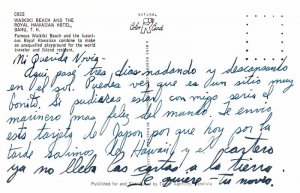 C622
WAIKIKI BEACH AND THE
ROYAL HAWAIIAN HOTEL,
OAHU, T. H.
Famous Waikiki Beach and the luxuri-
ous Royal Hawaiian combine to make
an unequalled playground for the world
traveler and Island resident.
NATURAL
Color Card
Mi Querida Novia -
Aqui pase tres dias nadando y descansando
en el sol. Puedes ver que es un sitio muy
bonito. Si pudieras estar con migo seria el
marinero mas feliz del mundo. Te envio
esta tarjeta de Japon por que hoy por la
tarde salimos de Hawaii y el cartero
ya no lleba las cartas a la tierra.
quiere tu novio.
Published for and Distributed by